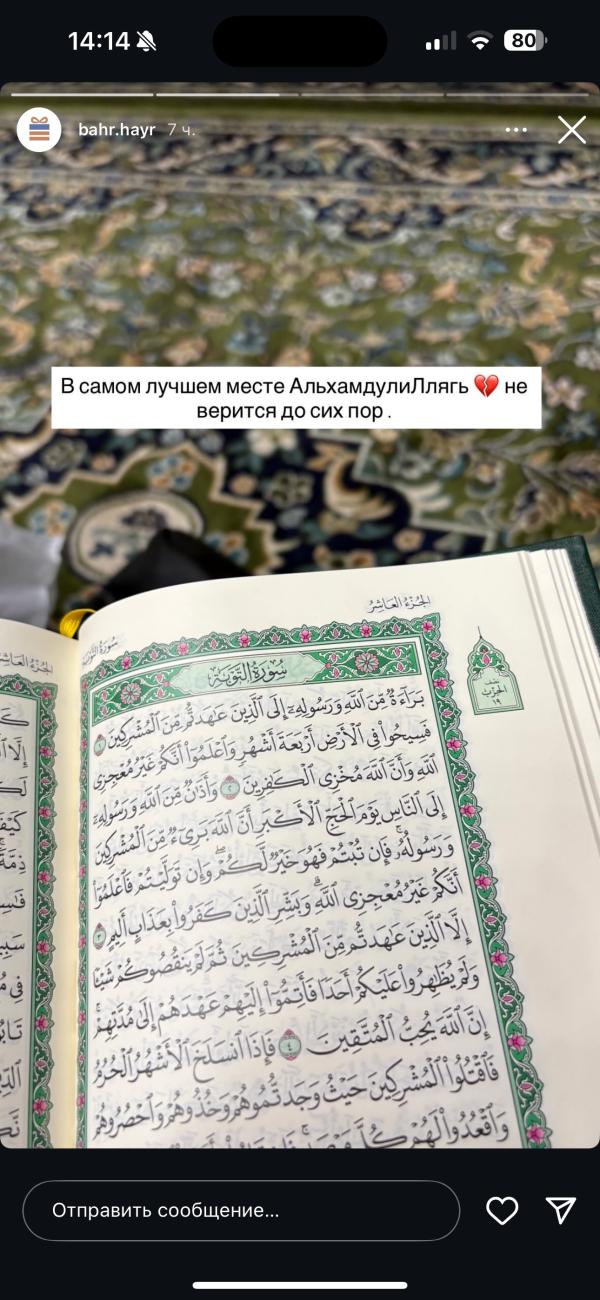 14:14
80
bahr.hayr 7 ч.
В самом лучшем месте АльхамдулиЛлягь 💔 не
верится до сих пор .
الجزء العاشر
سورة التوبة
نصف
الحزب
١٩
سُورَةُ التَّوْبَةِ
بَرَآءَةٌ مِّنَ ٱللَّهِ وَرَسُولِهِۦٓ إِلَى ٱلَّذِينَ عَٰهَدتُّم مِّنَ ٱلْمُشْرِكِينَ ١
فَسِيحُوا۟ فِى ٱلْأَرْضِ أَرْبَعَةَ أَشْهُرٍ وَٱعْلَمُوٓا۟ أَنَّكُمْ غَيْرُ مُعْجِزِى
ٱللَّهِ وَأَنَّ ٱللَّهَ مُخْزِى ٱلْكَٰفِرِينَ ٢ وَأَذَٰنٌ مِّنَ ٱللَّهِ وَرَسُولِهِۦٓ
إِلَى ٱلنَّاسِ يَوْمَ ٱلْحَجِّ ٱلْأَكْبَرِ أَنَّ ٱللَّهَ بَرِىٓءٌ مِّنَ ٱلْمُشْرِكِينَ
وَرَسُولُهُۥ فَإِن تُبْتُمْ فَهُوَ خَيْرٌ لَّكُمْ وَإِن تَوَلَّيْتُمْ فَٱعْلَمُوٓا۟
أَنَّكُمْ غَيْرُ مُعْجِزِى ٱللَّهِ وَبَشِّرِ ٱلَّذِينَ كَفَرُوا۟ بِعَذَابٍ أَلِيمٍ ٣
إِلَّا ٱلَّذِينَ عَٰهَدتُّم مِّنَ ٱلْمُشْرِكِينَ ثُمَّ لَمْ يَنقُصُوكُمْ شَيْـًٔا
وَلَمْ يُظَٰهِرُوا۟ عَلَيْكُمْ أَحَدًا فَأَتِمُّوٓا۟ إِلَيْهِمْ عَهْدَهُمْ إِلَىٰ مُدَّتِهِمْ
إِنَّ ٱللَّهَ يُحِبُّ ٱلْمُتَّقِينَ ٤ فَإِذَا ٱنسَلَخَ ٱلْأَشْهُرُ ٱلْحُرُمُ
فَٱقْتُلُوا۟ ٱلْمُشْرِكِينَ حَيْثُ وَجَدتُّمُوهُمْ وَخُذُوهُمْ وَٱحْصُرُوهُمْ
وَٱقْعُدُوا۟ لَهُمْ كُلَّ
Отправить сообщение...